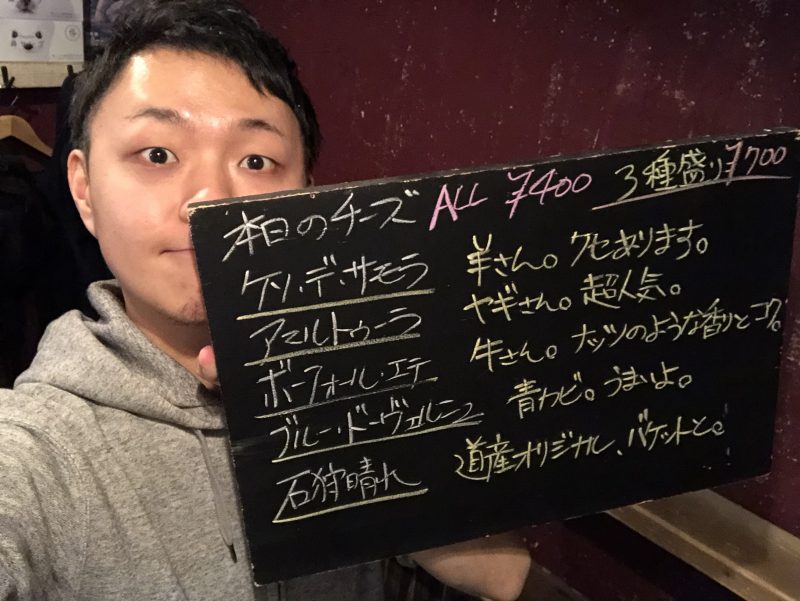 本日のチーズ ALL ¥400 3種盛り ¥700
ケソ・デ・サモラ 羊さん。クセあります。
アマルトゥーラ ヤギさん。超人気。
ボーフォール・エテ 牛さん。ナッツのような香りとコク。
ブルー・ドーヴェルニュ 青カビ。うまいよ。
石狩晴れ 道産オリジナル、バケットと。